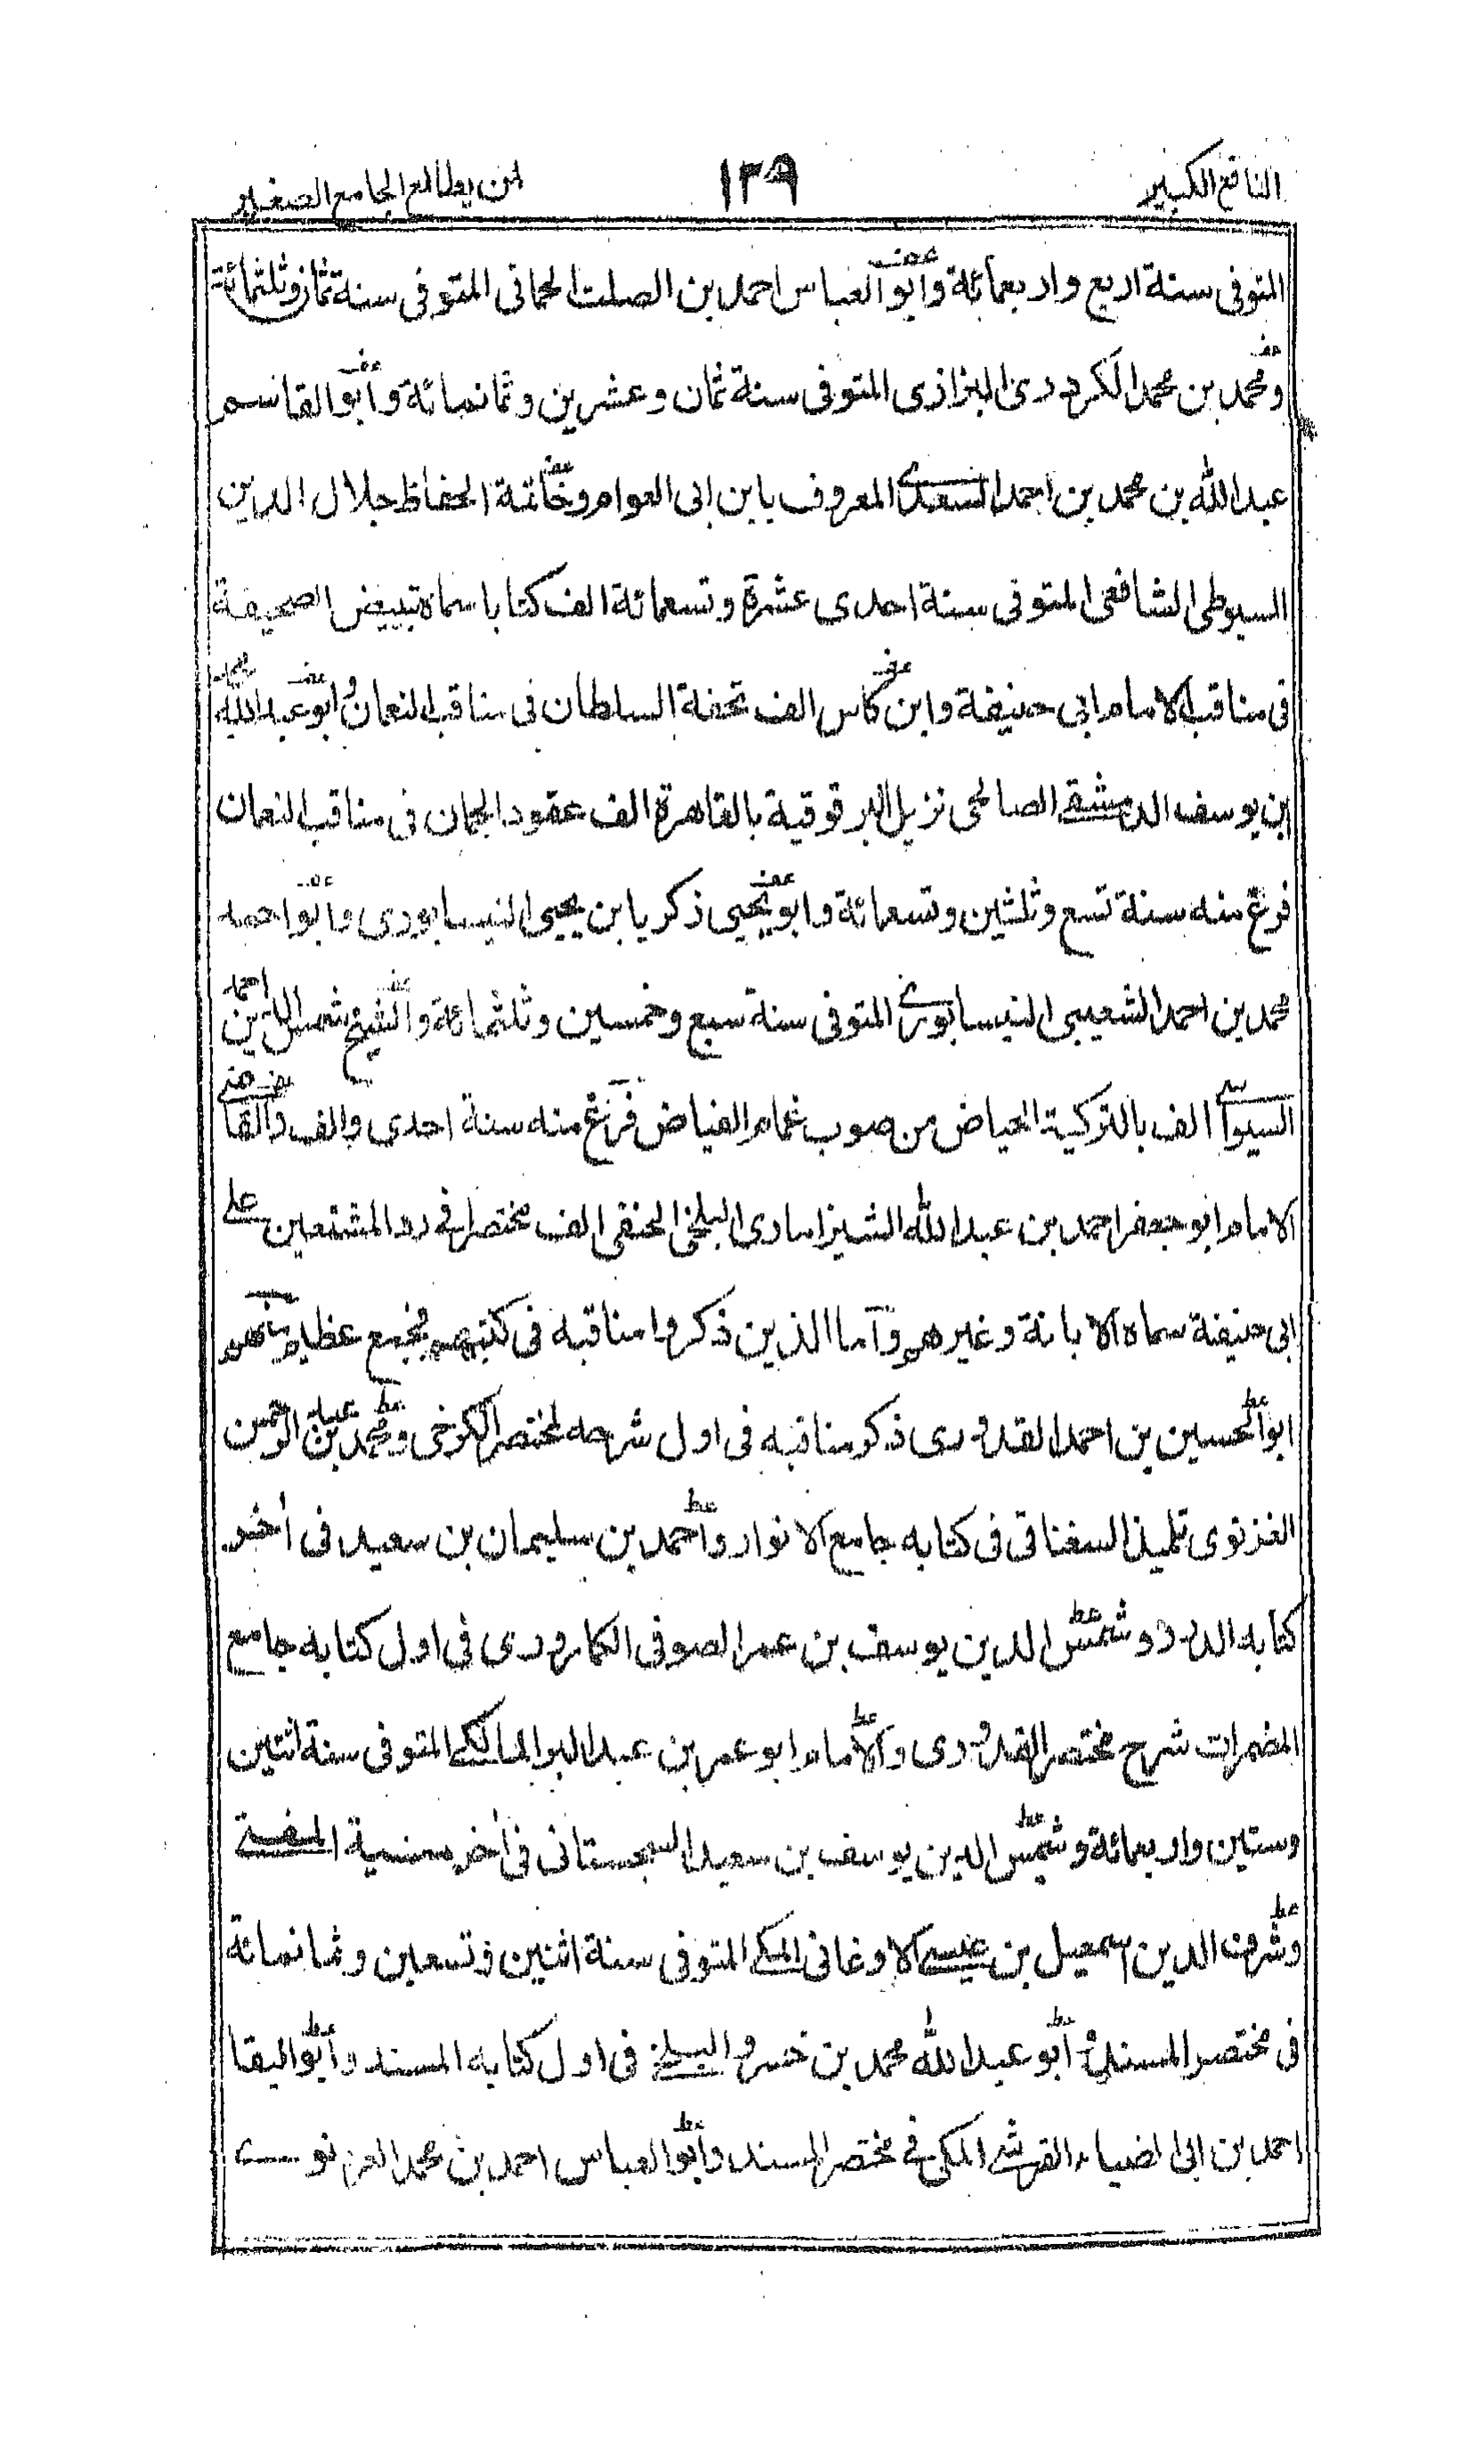 النافع الكبير ١٣٩ لمن يطالع الجامع الصغير
المتوفى سنة اربع واربعمائة وابو العباس احمد بن الصلت الحمانى المتوفى سنة ثمان وثلثمائة
ومحمد بن محمد الكردرى البزازى المتوفى سنة ثمان وعشرين وثمانمائة وابو القاسم
عبد الله بن محمد بن احمد السعدى المعروف بابن ابى العوام وخاتمة الحفاظ جلال الدين
السيوطى الشافعى المتوفى سنة احدى عشرة وتسعمائة الف كتابا سماه تبييض الصحيفة
فى مناقب الامام ابى حنيفة وابن كاس الف تحفة السلطان فى مناقب النعمان وابو عبد الله محمد
بن يوسف الدمشقى الصالحى نزيل البرقوقية بالقاهرة الف عقود الجمان فى مناقب النعمان
فرغ منه سنة تسع وثلثين وتسعمائة وابو يحيى زكريا بن يحيى النيسابورى وابو احمد
محمد بن احمد الشعيبى النيسابورى المتوفى سنة سبع وخمسين وثلثمائة والشيخ شمس الدين احمد
السيواسى الف بالتركية الحياض من صوب غمام الفياض فرغ منه سنة احدى والف والقاضى
الامام ابو جعفر احمد بن عبد الله الشيزامادى البلخى الحنفى الف مختصرا فى رد المشنعين على
ابى حنيفة سماه الابانة وغيرهم واما الذين ذكروا مناقبه فى كتبهم فجمع عظيم منهم
ابو الحسين بن احمد القدورى ذكر مناقبه فى اول شرحه لمختصر الكرخى ومحمد بن عبد الرحمن
الغزنوى تلميذ السغناقى فى كتابه جامع الانوار واحمد بن سليمان بن سعيد فى أخر
كتابه الدرر وشمس الدين يوسف بن عمر الصوفى الكمارورى فى اول كتابه جامع
المضمرات شرح مختصر القدورى والامام ابو عمر بن عبد البر المالكى المتوفى سنة اثنتين
وستين واربعمائة وشمس الدين يوسف بن سعيد السجستانى فى أخر منية المفتى
وشرف الدين اسمعيل بن عيسى الاوغانى المكى المتوفى سنة اثنين وتسعين وثمانمائة
فى مختصر المسند وابو عبد الله محمد بن خسرو البلخى فى اول كتابه المسند وابو البقا
احمد بن ابى الضياء القرشى المكى فى مختصر المسند وابو العباس احمد بن محمد الغزنوى